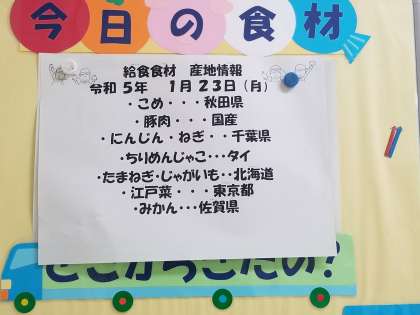 今日の食材
給食食材 産地情報
令和 5年 1月 23日（月）
・こめ・・・秋田県
・豚肉・・・国産
・にんじん・ねぎ・・千葉県
・ちりめんじゃこ・・・タイ
・たまねぎ・じゃがいも・・北海道
・江戸菜・・・東京都
・みかん・・・佐賀県
どこからきたの？